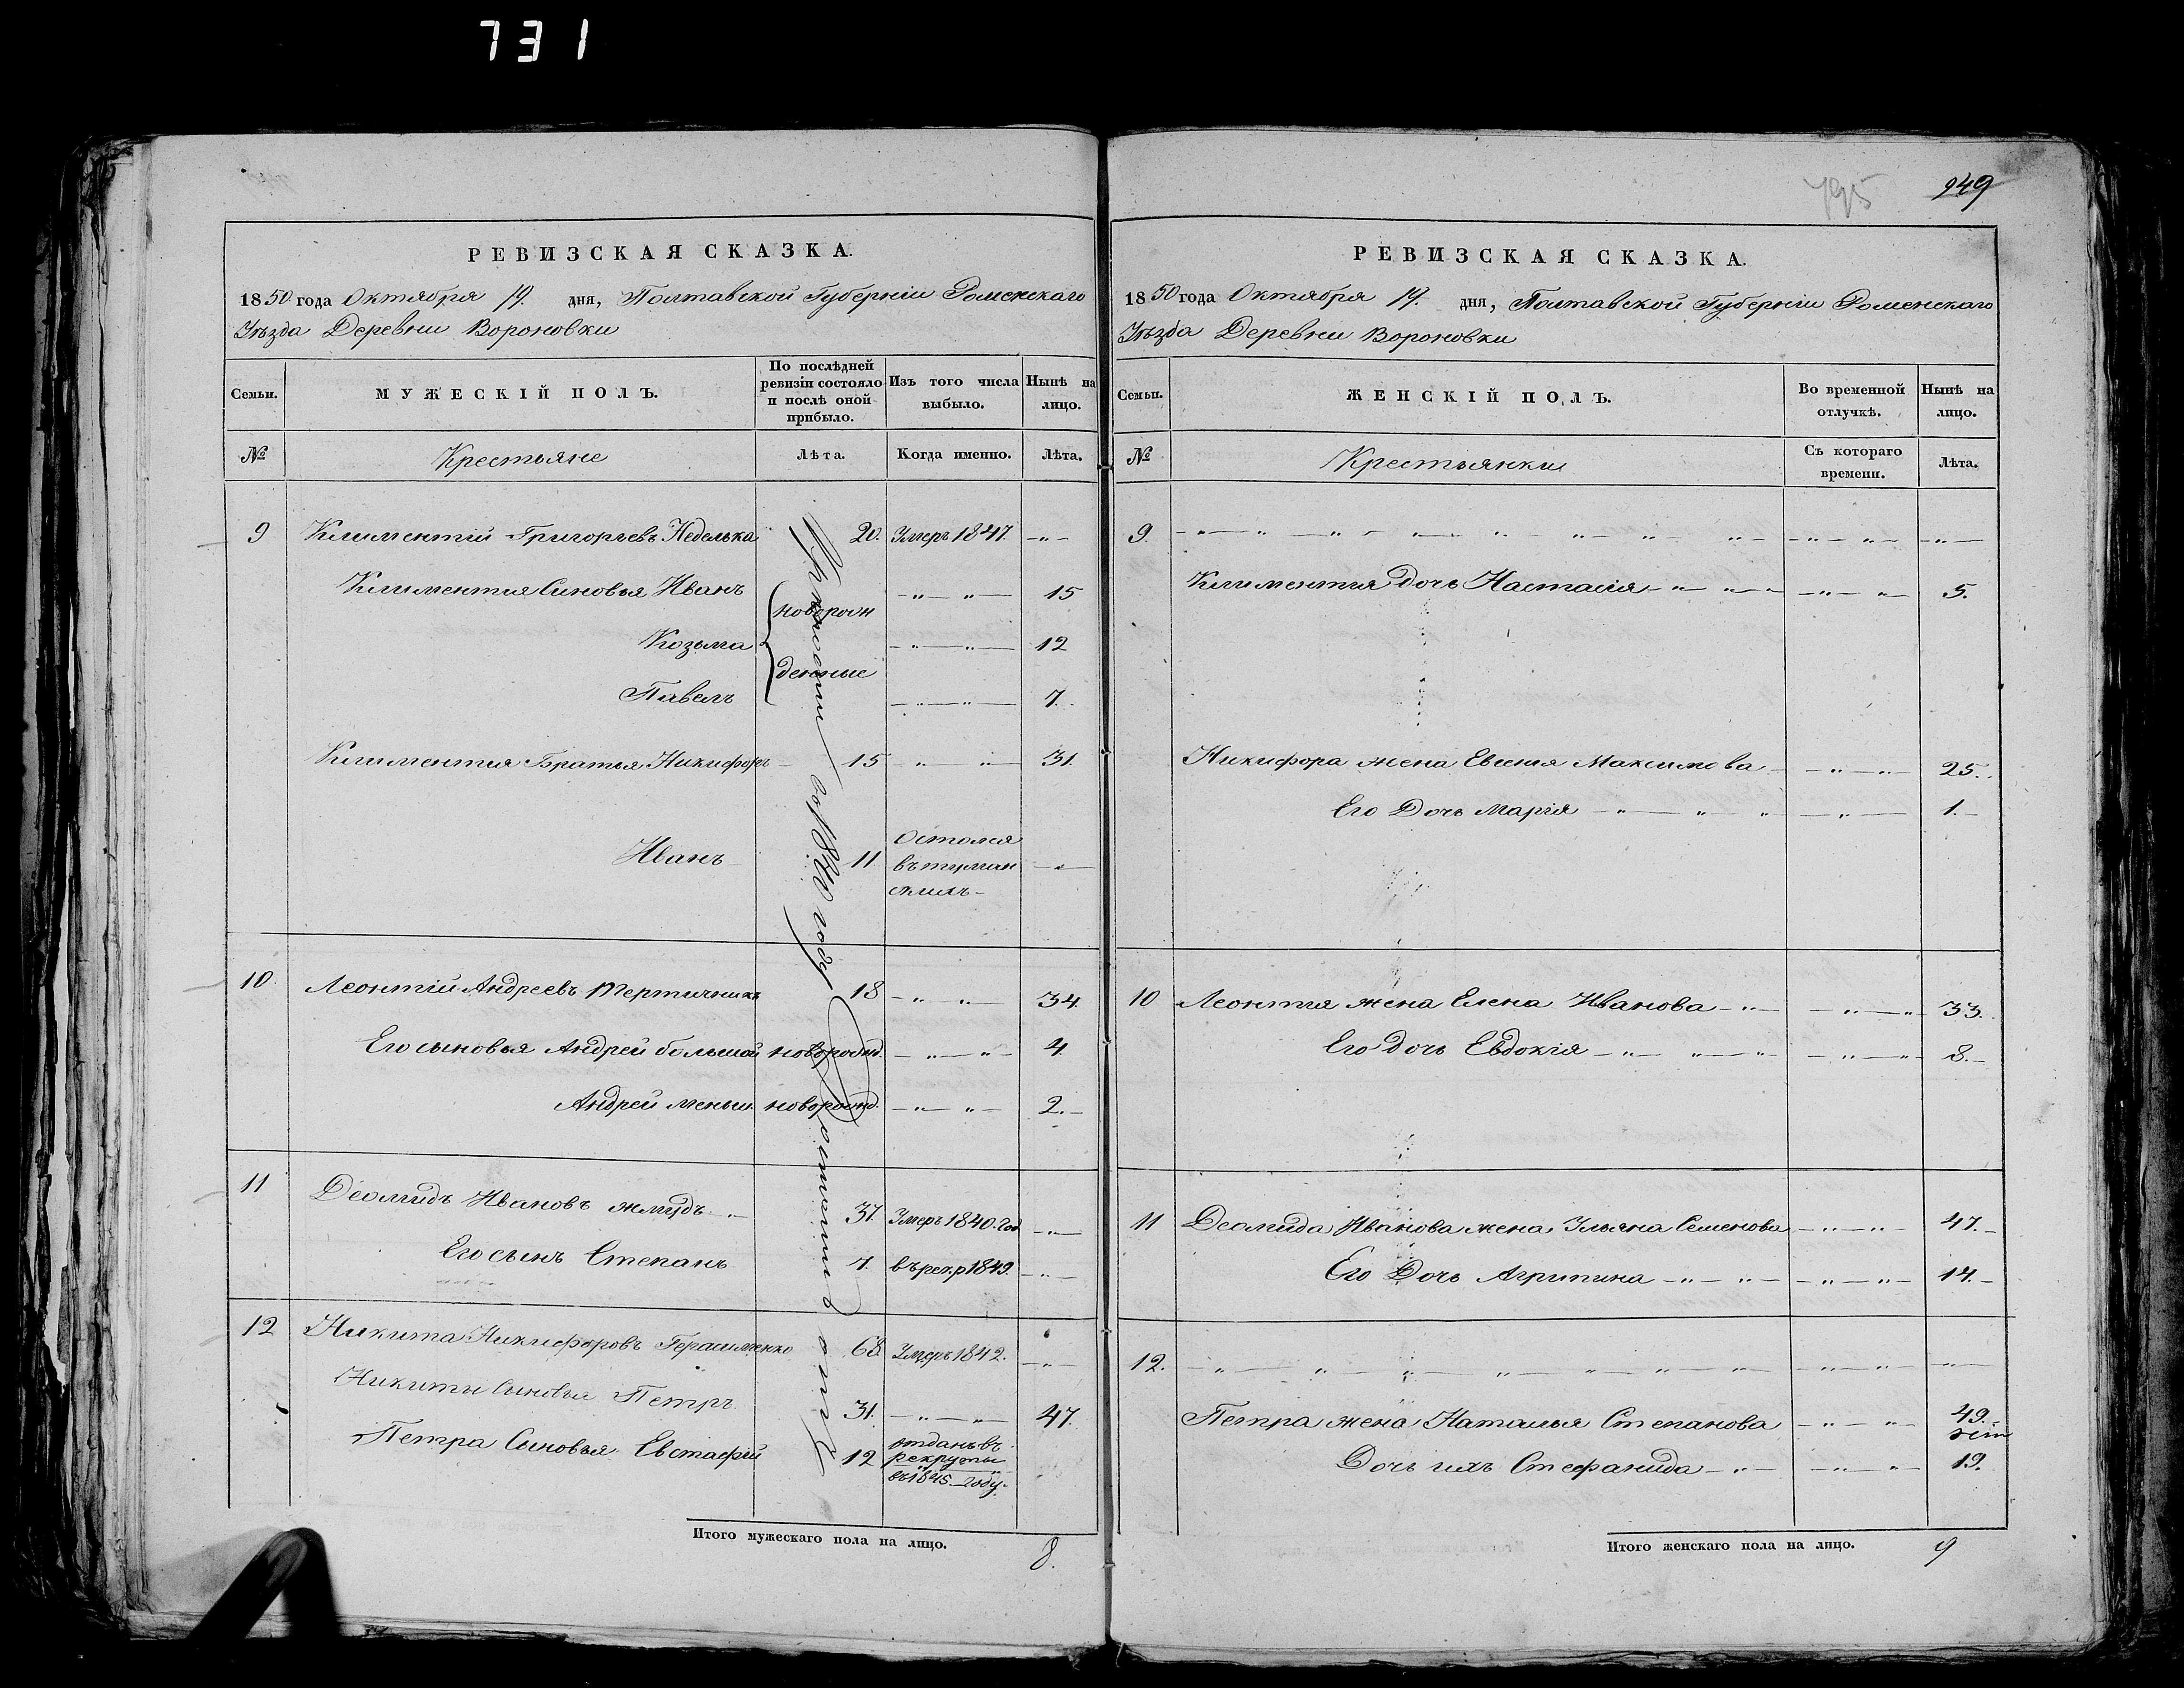 731
РЕВИЗСКАЯ СКАЗКА.
1850 года Октября 19. дня, Полтавской Губерніи Роменскаго
Уѣзда Деревни Вороновки
Семьи.
МУЖЕСКІЙ ПОЛЪ.
По послѣдней
ревизіи состояло
и послѣ оной
прибыло.
Изъ того числа
выбыло.
Нынѣ на
лицо.
№
Крестьяне
Лѣта.
Когда именно.
Лѣта.
9 Климентій Григорьевъ Неделька 20. Умеръ 1847. -"-
Климентия Синовья Иванъ -"- "- 15
новорож
Козьма -"- "- 12
денные
Павелъ -"- "- 7.
Климентия Братья Никифоръ - 15 -"- "- 31.
Иванъ 11
Остался
въ
-"-
10. Леонтій Андреевъ Тертичникъ 18 -"- "- 34.
Его сыновья Андрей большой новорожд. -"- "- 4.
Андрей меньш. новорожд. -"- "- 2.-
11 Деомидъ Ивановъ Жмудъ -" 37. Умеръ 1840. год -"-
Его сынъ Степанъ 7. въ рекр 1849. -"-
12 Никита Никифоровъ Герасименко 68 Умеръ 1842. -"-
Никиты Синовья Петръ 31. -"- "- 47.
Петра Синовья Евстафій 12
отданъ въ
рекруты
въ 1845. году.
въ 1840 году
Итого мужескаго пола на лицо. 8.
795 949
РЕВИЗСКАЯ СКАЗКА.
1850 года Октября 19. дня, Полтавской Губерніи Роменскаго
Уѣзда Деревни Вороновки
Семьи.
ЖЕНСКІЙ ПОЛЪ.
Во временной
отлучкѣ.
Нынѣ на
лицо.
№
Крестьянки
Съ котораго
времени.
Лѣта.
9. -"- "- "- "- "- "- "-
Климентия дочь Настасія -"- "- -"- "- 5.
Никифора жена Евгенія Максимова - -"- "- 25.
Его Дочь Марія -"- "- " -"- 1.-
10 Леонтия жена Елена Иванова -"- -"- "- 33.
Его дочь Евдокія -"- "- "- -"- "- 8.-
11 Деомида Иванова жена Ульяна Семенова -"- "- 47.-
Его Дочь Агрипина -"- "- -"- "- 14.-
12. -"- "- "- "- "- "- "-
Петра жена Наталья Степанова -"- "- 49.
Дочь ихъ Стефанида -"- -"- "- 19.
Итого женскаго пола на лицо. 9